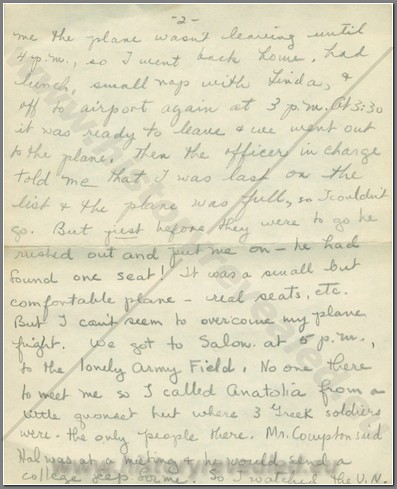 -2-
me the plane wasn't leaving until
4 p.m., so I went back home, had
lunch, small nap with Linda, &
off to airport again at 3 p.m. At 3:30
it was ready to leave & we went out
to the plane. Then the officer in charge
told me that I was last on the
list & the plane was full, so I couldn't
go. But just before they were to go he
rushed out and put me on - he had
found one seat! It was a small but
comfortable plane - real seats, etc.
But I can't seem to overcome my plane
fright. We got to Salon. at 5 p.m.,
to the lonely Army Field. No one there
to meet me so I called Anatolia from a
little quonset hut where 3 Greek soldiers
were the only people there. Mr. Compton said
Hal was at a meeting & he would send a
college jeep for me. So I watched the U.N.